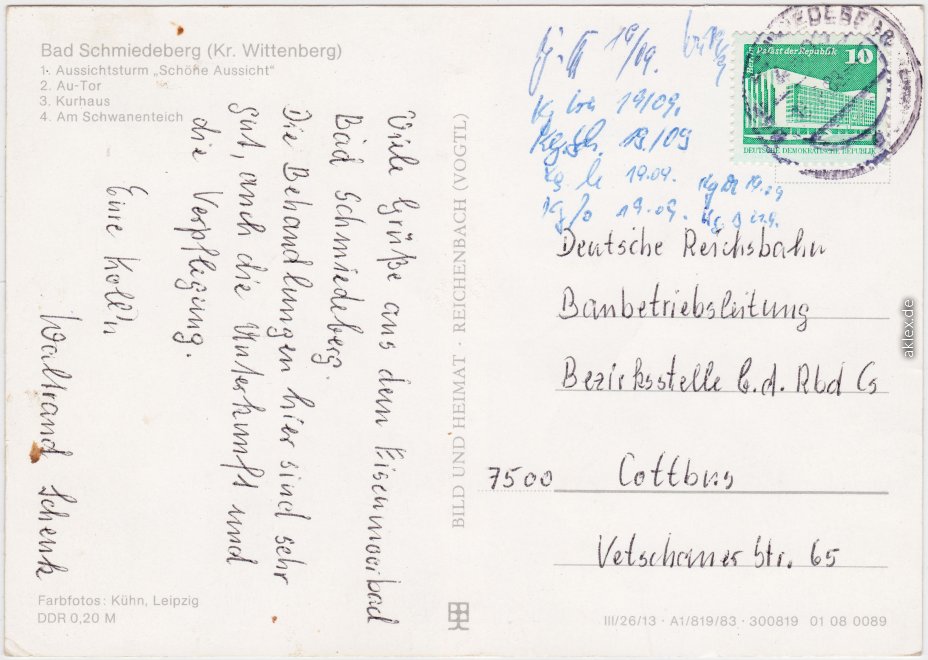 Bad Schmiedeberg (Kr. Wittenberg)
1. Aussichtsturm „Schöne Aussicht"
2. Au-Tor
3. Kurhaus
4. Am Schwanenteich
Viele Grüße aus dem Eisenmoorbad
Bad Schmiedeberg.
Die Behandlungen hier sind sehr
gut, auch die Unterkunft und
die Verpflegung.
Eure Kolln
Waltraud Schenk
Farbfotos: Kühn, Leipzig
DDR 0,20 M
BILD UND HEIMAT · REICHENBACH (VOGTL)
19/09.
19/09.
19/09
19.09.
19.09
19.09.
Berlin Palast der Republik
10
DEUTSCHE DEMOKRATISCHE REPUBLIK
Deutsche Reichsbahn
Baubetriebsleitung
Bezirksstelle b.d. Rbd Cs
7500 Cottbus
Vetschauer Str. 65
III/26/13 · A1/819/83 · 300819 01 08 0089
aklex.de